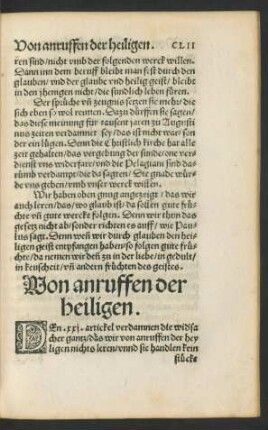 Von anruffen der heiligen. CLII
ren sind/nicht vmb der folgenden werck willen.
Dann inn dem beruff bleibt man fest durch den
glauben/vnd der glaube vnd heilig geist/bleibt
in den jhenigen nicht/die sündlich leben füren.
Der sprüche vñ zeugnis setzen sie mehr/die
sich eben so wol reimen. Dazu dürffen sie sagen/
das diese meinung für tausent jaren zu Augusti
nus zeiten verdamnet sey/das ist nicht war/son
der ein lügen. Denn die Christlich kirche hat alle
zeit gehalten/das vergebung der sünde/one ver-
dienst vns widerfare/vnd die Pelagiani sind da-
rümb verdampt/die da sagten/Die gnade wür-
de vns geben/vmb vnser werck willen.
Wir haben oben gnug angezeigt/das wir
auch leren/das/wo glaub ist/da sollen gute frü-
chte vñ gute werck folgen. Denn wir thun das
gesetz nicht ab/sonder richten es auff/wie Pau-
lus sagt. Denn weñ wir durch glauben den hei-
ligen geist empfangen haben/so folgen gute frü-
chte/da nemen wir deñ zu in der liebe/in gedult/
in keuscheit/vñ andern früchten des geistes.
Von anruffen der
heiligen.
DEn .xxj. artickel verdamnen die widsa
cher gantz/das wir von anruffen der hey
ligen nichts leren/vnnd sie handlen kein
stücke